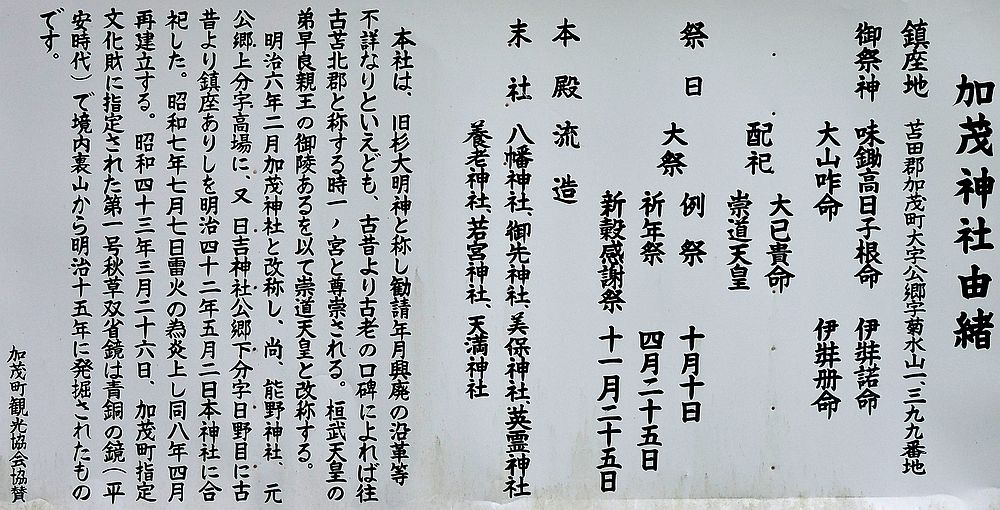 加茂神社由緒
鎮座地 苫田郡加茂町大字公郷字菊水山一、三九九番地
御祭神 味鋤高日子根命 伊弉諾命
大山咋命 伊弉册命
配祀 大已貴命
崇道天皇
祭日 大祭 例祭 十月十日
祈年祭 四月二十五日
新穀感謝祭 十一月二十五日
本殿 流造
末社 八幡神社、御先神社、美保神社、英霊神社
養老神社、若宮神社、天満神社
本社は、旧杉大明神と称し勧請年月興廃の沿革等
不詳なりといえども、古昔より古老の口碑によれば往
古苫北郡と称する時一ノ宮と尊崇される。桓武天皇の
弟早良親王の御陵あるを以て崇道天皇と改称する。
明治六年二月加茂神社と改称し、尚、能野神社、元
公郷上分字高場に、又日吉神社公郷下分字日野目に古
昔より鎮座ありしを明治四十二年五月二日本神社に合
祀した。昭和七年七月七日雷火の為炎上し同八年四月
再建立する。昭和四十三年三月二十六日、加茂町指定
文化財に指定された第一号秋草双省鏡は青銅の鏡(平
安時代)で境内裏山から明治十五年に発掘されたもの
です。
加茂町観光協会協賛